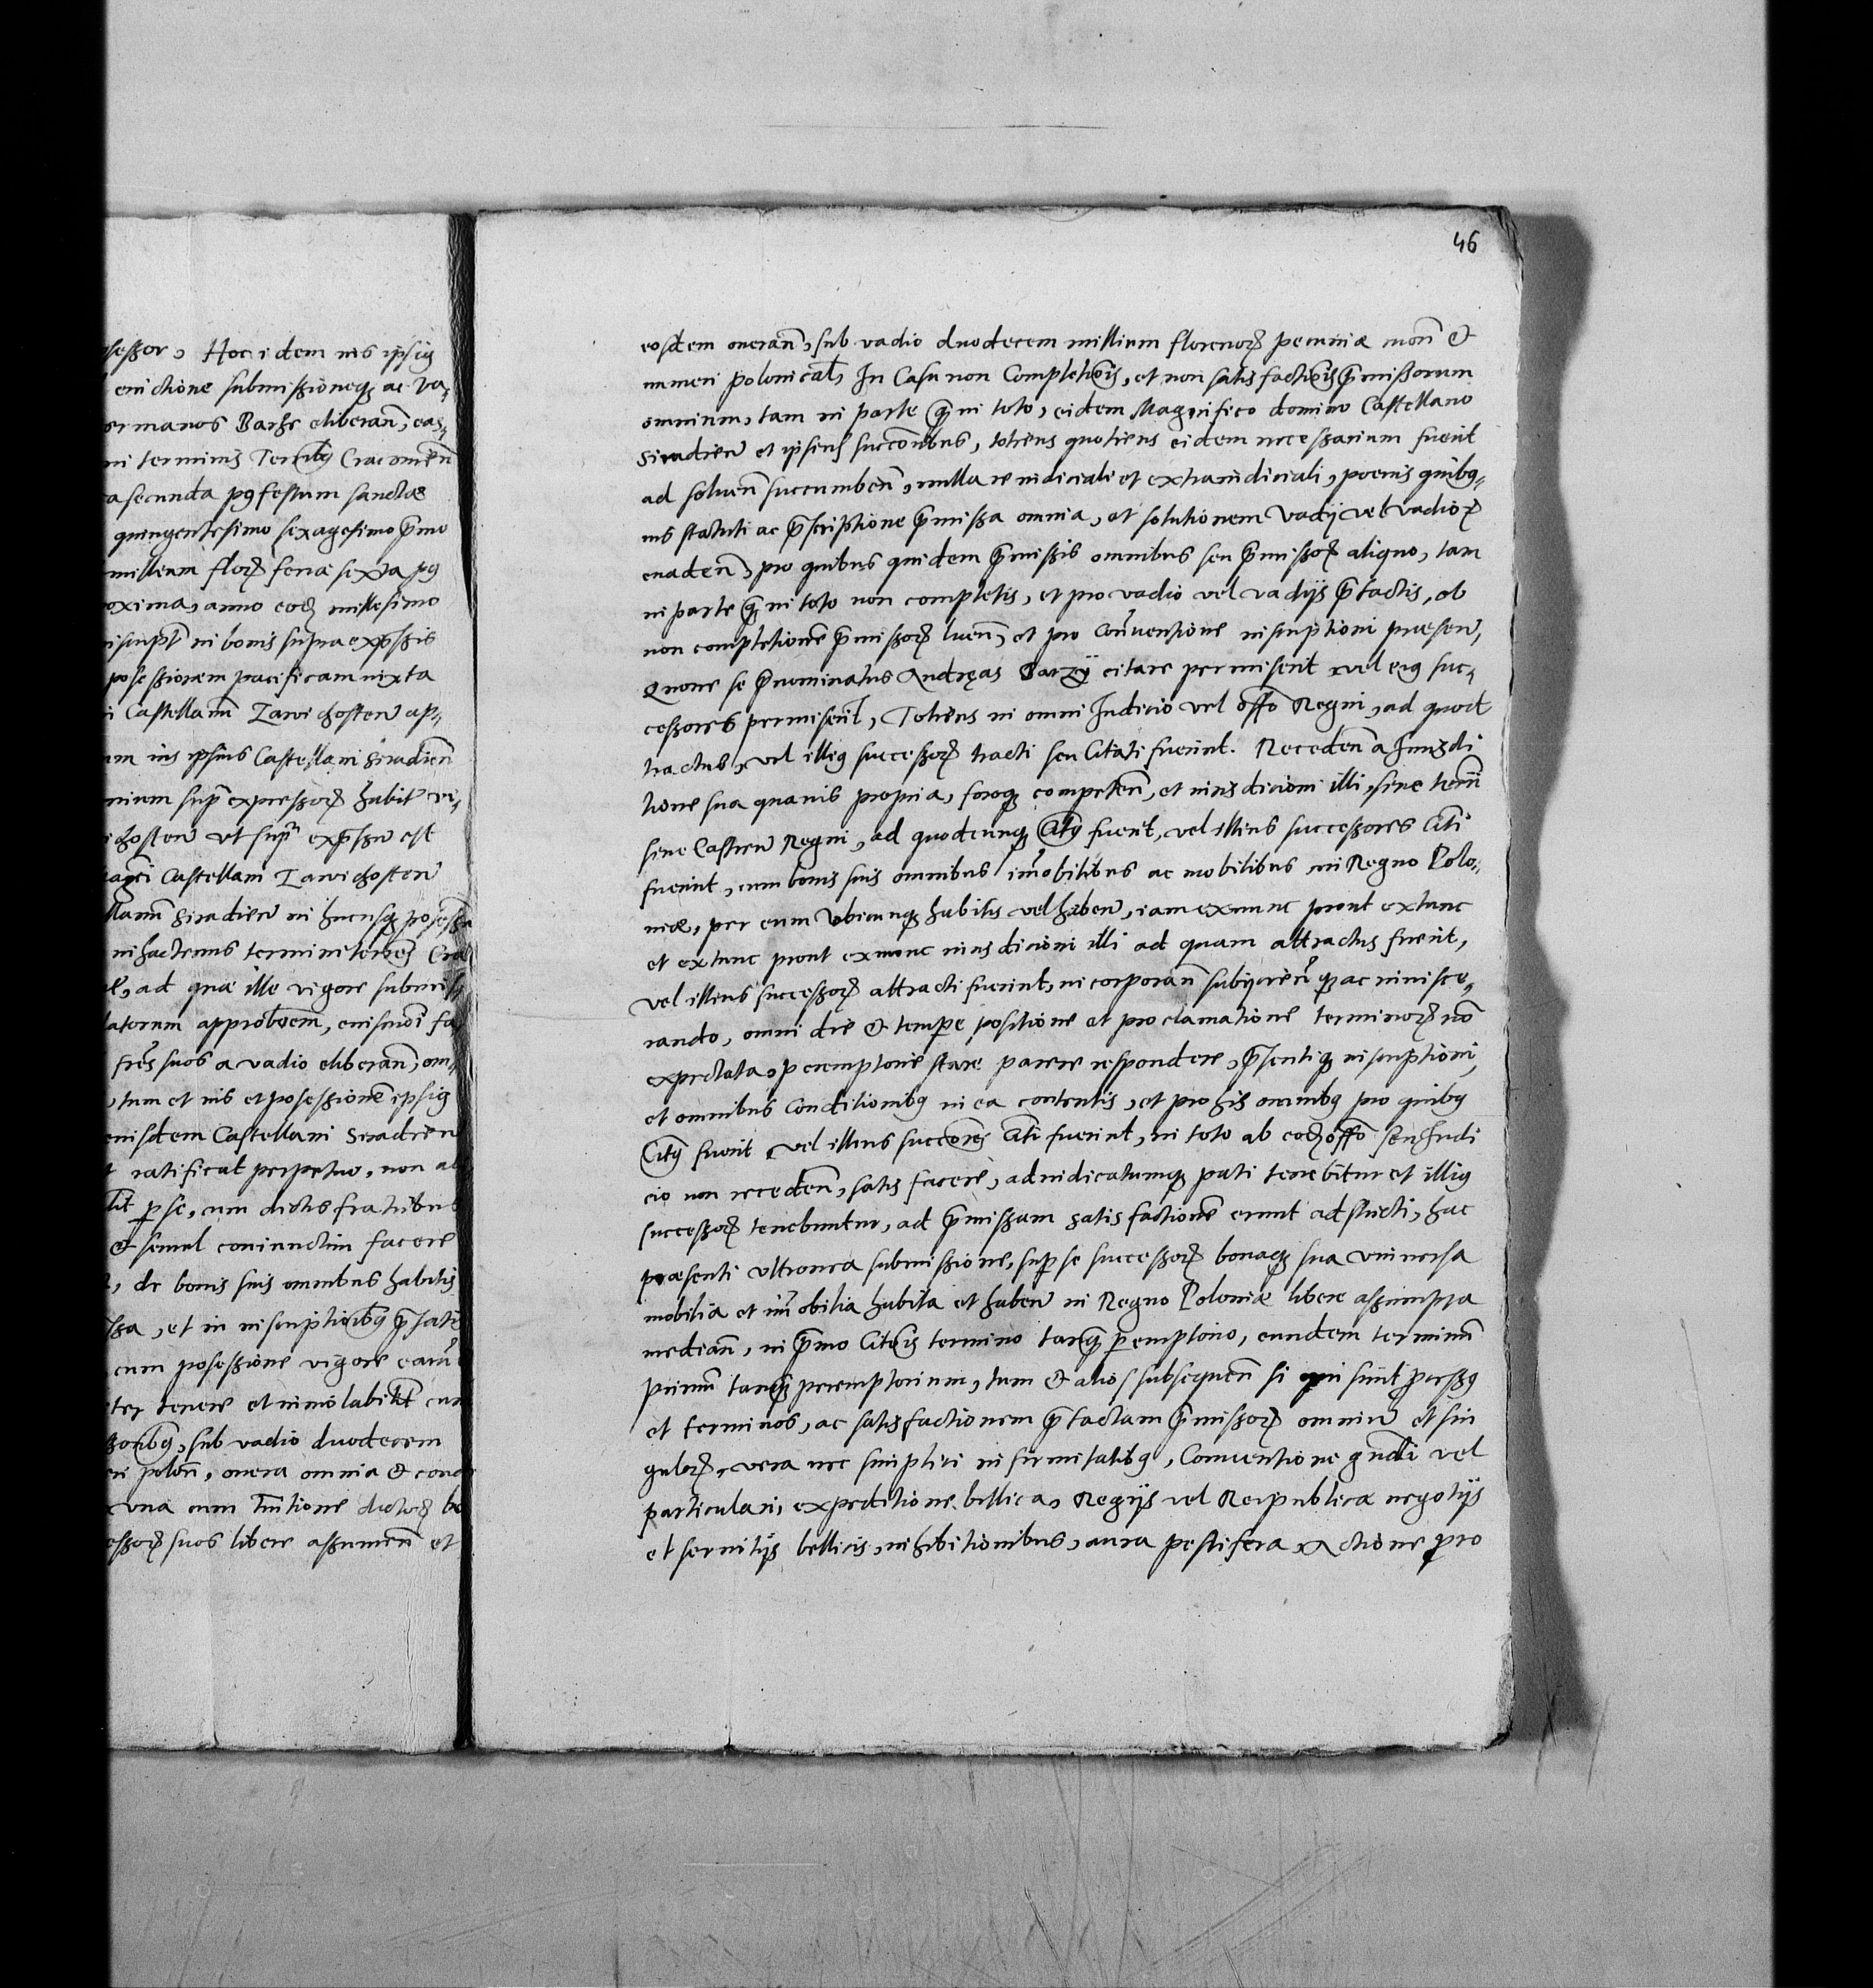 ssessor, Hoc idem ius ipsig
euictione submissioneq ac va,
ermanos Barze eliberan, eas,
ni terminis Terribg Cracouien
a secunda pg festum sanctae
quingentesimo sexagesimo pmo
millium florz feria sexta pg
oxima, anno eod millesimo
inscript in bonis supra expssis
possessionem pacificam iuxta
i Castellani Zawichosten ap,
um ius ipsius Castellani Siradien
nium supr expressorz habit
ichosten vt supr expssu est
agci Castellani Zawichosten
llanu Siradien in hucusq possess
in hactenus termini terres Cra
ad quae ille vigore submiss
latorum approbocem, euismodi fa
fres suos a vadio eliberan, om
tum et ius et possessione ipsig
euisdem Castellani Siradien
t ratificat perpetuo, non al
p se, cum dictis fratribus
& semel coniunctim facere
de bonis suis omnibus habitis
ssa, et in inscriptioibg pfatis
cum possessione vigore earu
ter tenere et inuiolabilit cum
soribg, sub vadio duodecem
ri polon, onera omnia & cond
vna cum tuitione dictorz bo
essorz suos libere assumen et
46
eosdem oneran, sub vadio duodecem millium florenorz pecuniae mon &
numeri polonical, In Casu non Completiois, et non satisfactiois pmissorum
omnium, tam in parte q in toto, eidem Magnifico domino Castellano
Siradien et ipsius succoribus, totiens quotiens eidem necessarium fuerit
ad soluen succumben, nulla re iudiciali et extraiudiciali, poenis quibg,
uis statuti ac pscriptione pmissa omnia, et solutionem vadij vel vadiorz
euaden, pro quibus quidem pmissis omnibus seu pmissorz aliquo, tam
in parte q in toto non completis, et pro vadio vel vadijs pfactis, ob
non completione pmissorz luen, et pro Conuentione inscriptioni praesen,
Quone se pnominatus Andreas Barzÿ citare permiserit vel eig suc,
cessores permiserit, Totiens in omni Iudicio vel offo Regni, ad quod
tractus, vel illig successorz tracti seu Citati fuerint. Receden a Iurisdi
tione sua quauis propria, foroq competen, et iurisdicioni illi, siue terri
siue Castren Regni, ad quodcunq Citg fuerit, vel illius successores Citi
fuerint, cum bonis suis omnibus immobilibus ac mobilibus, in Regno Polo,
niae, per eum vbicunq habitis vel haben, iam exnunc prout extunc
et extunc prout exnunc iurisdicioni illi ad quam attractus fuerit,
vel illius successorz attracti fuerint, incorporan subijcien q ac inuisce,
rando, omni die & tempe positione et proclamatione terminorz no
expectata, peremptorie stare parere respondere, psentiq inscriptioni,
et omnibus Conditionibg in ea contentis, et pro his omnibg pro quibg
Citg fuerit vel illius succores Citi fuerint, in toto ab eod offo seu Iudi
cio non receden, satis facere, adiudicatumq pati tenebitur et illig
successorz tenebuntur, ad pmissam satisfactione erunt adstricti, hac
praesenti vltronea submissione, sup se successorz bonaq sua vniuersa
mobilia et immobilia habita et haben in Regno Poloniae libere assumpta
median, in pmo Citois termino tanq peremptorio, eundem terminu
primu tanq peremptorium, tum & alios subsequen si qui sint perssg
et terminos, ac satisfactionem pfactam pmissorz omniu et sin
gulorz, vera nec simplici infirmitatibg, Conuentione gnali vel
particulari, expeditione bellica, Regijs vel Reipublicae negotijs
et seruitijs bellicis, inhibitionibus, aura pestifera, Actione pro